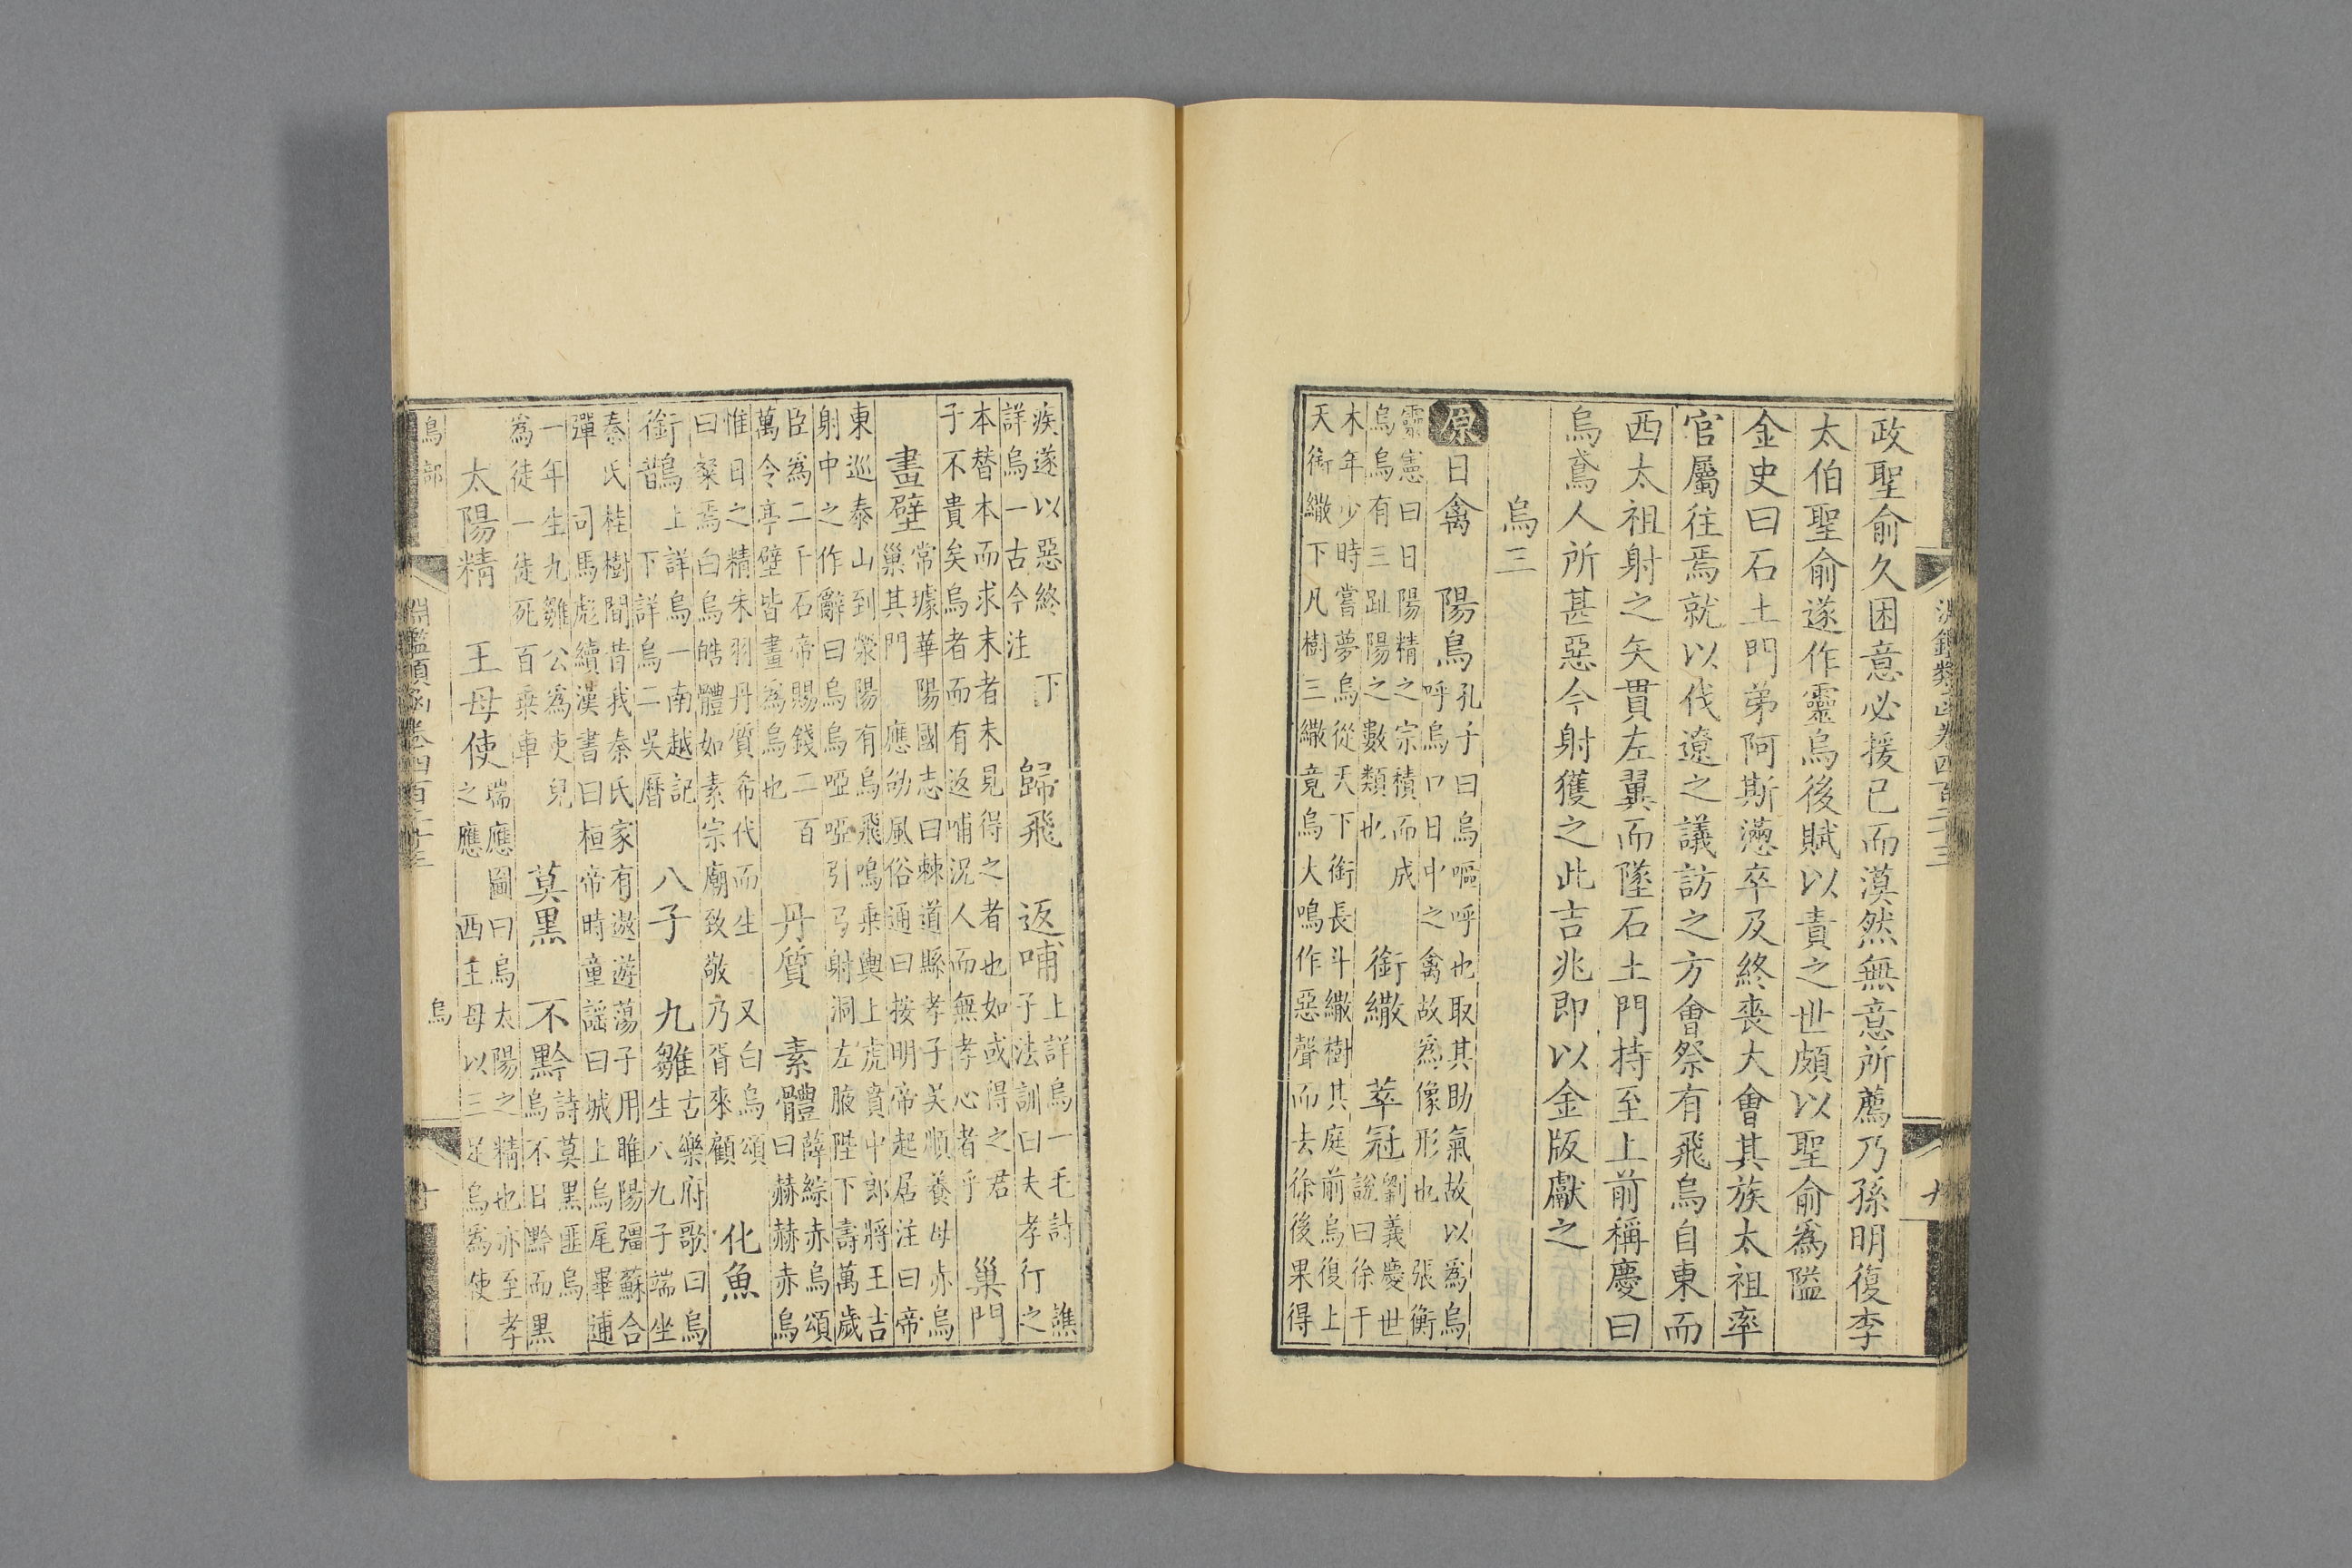 淵鑑類函卷四百二十三 九
政聖俞久困意必援已而漠然無意所薦乃孫明復李
太伯聖俞遂作靈烏後賦以責之世頗以聖俞為隘
金史曰石土門弟阿斯懣卒及終喪大會其族太祖率
官屬往焉就以伐遼之議訪之方會祭有飛烏自東而
西太祖射之矢貫左翼而墜石土門持至上前稱慶曰
烏鳶人所甚惡今射獲之此吉兆即以金版獻之
烏三
原 日禽 陽烏 孔子曰烏嘔呼也取其助氣故以為烏
呼烏口日中之禽故為像形也 張衡
靈憲曰日陽精之宗積而成
烏烏有三趾陽之數類也 銜繖 萃冠 劉義慶世
說曰徐干
木年少時嘗夢烏從天下銜長斗繖樹其庭前烏復上
天銜繖下凡樹三繖竟烏大鳴作惡聲而去徐後果得
疾遂以惡終 下
詳烏一古今注 歸飛 返哺 上詳烏一毛詩 譙
子法訓曰夫孝行之
本替本而求末者未見得之者也如或得之君
子不貴矣烏者而有返哺況人而無孝心者乎 巢門
畫壁 常璩華陽國志曰棘道縣孝子吳順養母赤烏
巢其門 應劭風俗通曰按明帝起居注曰帝
東巡泰山到滎陽有烏飛鳴乘輿上虎賁中郎將王吉
射中之作辭曰烏烏啞啞引弓射洞左腋陛下壽萬歲
臣為二千石帝賜錢二百
萬令亭壁皆畫為烏也 丹質 素體 薛綜赤烏頌
曰赫赫赤烏
惟日之精朱羽丹質希代而生 又白烏頌
曰粲焉白烏皓體如素宗廟致敬乃胥來顧 化魚
銜鵲 上詳烏一南越記
下詳烏二吳曆 八子 九雛 古樂府歌曰烏
生八九子端坐
秦氏桂樹間昔我秦氏家有遨遊蕩子用睢陽彊蘇合
彈 司馬彪續漢書曰桓帝時童謠曰城上烏尾畢逋
一年生九雛公為吏兒
為徒一徒死百乘車 莫黑 不黔 詩莫黑匪烏
烏不日黔而黑
太陽精 王母使 瑞應圖曰烏太陽之精也亦至孝
之應 西王母以三足烏為使
鳥部 淵鑑類函卷四百二十三 烏 十